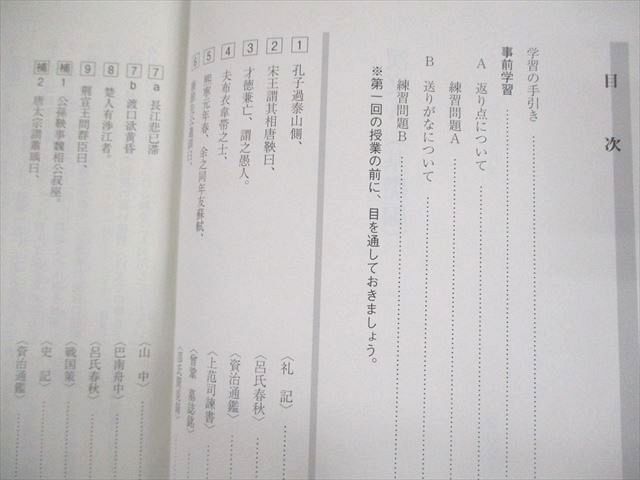 目次
学習の手引き
事前学習
A 返り点について
練習問題A
B 送りがなについて
練習問題B
※第一回の授業の前に、目を通しておきましょう。
1 孔子過泰山側、 〈礼記〉
2 宋王謂其相唐鞅曰、 〈呂氏春秋〉
3 才徳兼亡、謂之愚人。 〈資治通鑑〉
4 夫布衣韋帯之士、 〈上范司諫書〉
5 熙寧元年春、余之同年友蘇軾、 〈曾鞏 墓誌銘〉
6
7 a 長江悲已滞 〈山中〉
7 b 渡口欲黄昏 〈巴南舟中〉
8 楚人有渉江者。 〈呂氏春秋〉
9 荊宣王問群臣曰、 〈戦国策〉
補1 公孫鞅事魏相公叔座。 〈史記〉
補2 唐太宗謂蕭瑀曰、 〈資治通鑑〉